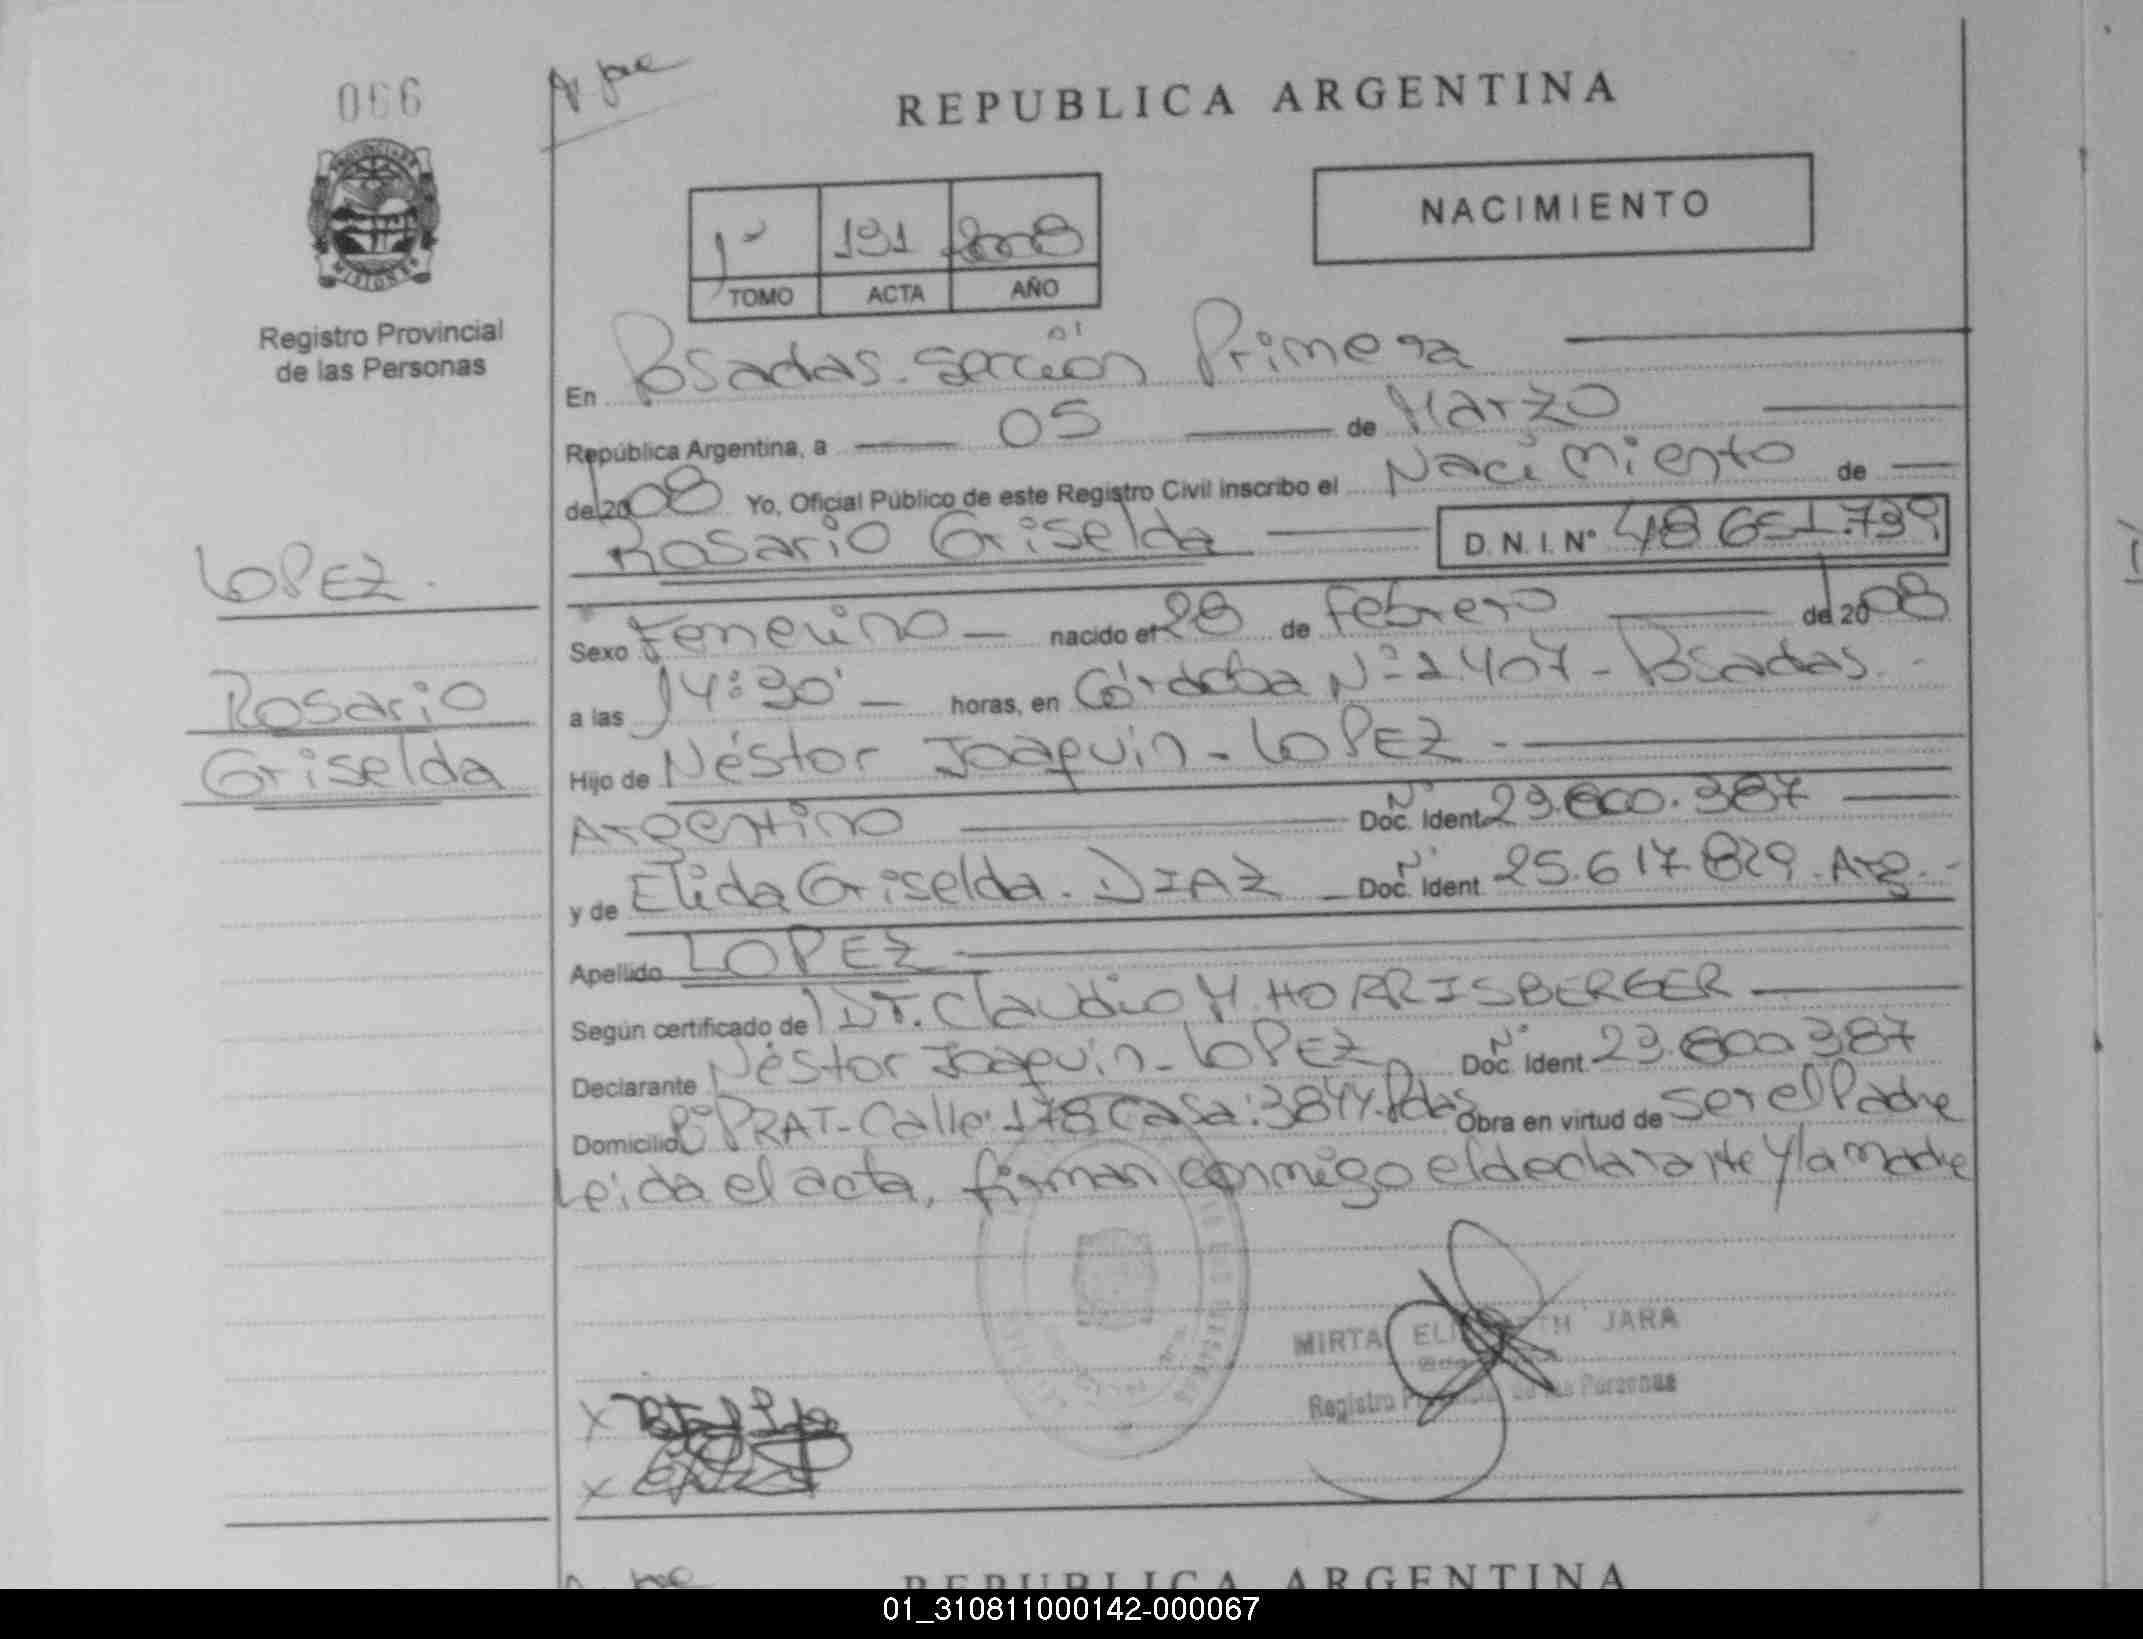 066
REPUBLICA ARGENTINA
NACIMIENTO
1º 191 2008
TOMO ACTA AÑO
Registro Provincial
de las Personas
En Posadas - sección Primera
República Argentina, a 05 de Marzo
del 2008 Yo, Oficial Público de este Registro Civil inscribo el Nacimiento de
Rosario Griselda D.N.I. Nº 48 651.739
LOPEZ
Rosario
Griselda
Sexo Femenino nacido el 28 de Febrero del 2008
a las 14:30' horas, en Córdoba Nº 2407 - Posadas.
Hijo de Néstor Joaquín - LOPEZ
Argentino Doc. Ident. Nº 23.600.387
y de Elida Griselda. DIAZ Doc. Ident. Nº 25.617.829. Arg.
Apellido LOPEZ
Según certificado de Dr. Claudio HORRISBERGER
Declarante Néstor Joaquín - LOPEZ Doc. Ident. Nº 23.600.387
Domicilio Bº PRAT - Calle: 178 Casa: 3844. Pdas Obra en virtud de ser el Padre
Leída el acta, firman conmigo el declarante y la madre
MIRTA JARA
Registro de las Personas
REPUBLICA ARGENTINA
01_310811000142-000067